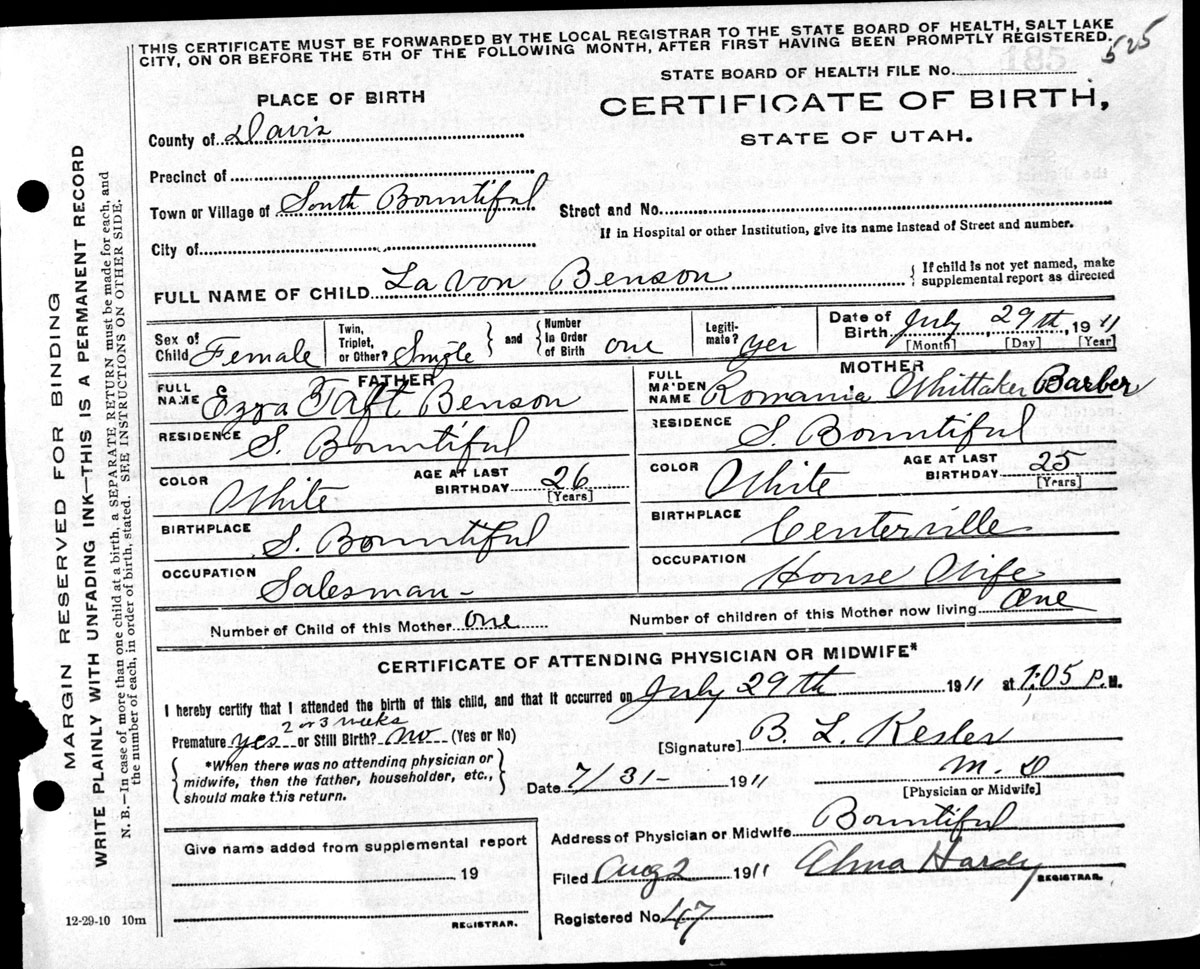 THIS CERTIFICATE MUST BE FORWARDED BY THE LOCAL REGISTRAR TO THE STATE BOARD OF HEALTH, SALT LAKE
CITY, ON OR BEFORE THE 5TH OF THE FOLLOWING MONTH, AFTER FIRST HAVING BEEN PROMPTLY REGISTERED.
525
185
STATE BOARD OF HEALTH FILE No.
PLACE OF BIRTH
CERTIFICATE OF BIRTH,
STATE OF UTAH.
County of Davis
Precinct of
Town or Village of South Bountiful
Street and No.
City of
If in Hospital or other Institution, give its name instead of Street and number.
FULL NAME OF CHILD La Von Benson
If child is not yet named, make
supplemental report as directed
Sex of Child Female
Twin, Triplet, or Other? Single
and
Number In Order of Birth one
Legiti-mate? yes
Date of Birth July, 29th, 1911
[Month] [Day] [Year]
FATHER
FULL NAME Ezra Taft Benson
RESIDENCE S. Bountiful
COLOR White
AGE AT LAST BIRTHDAY 26
[Years]
BIRTHPLACE S. Bountiful
OCCUPATION Salesman
MOTHER
FULL MAIDEN NAME Romania Whittaker Barber
RESIDENCE S. Bountiful
COLOR White
AGE AT LAST BIRTHDAY 25
[Years]
BIRTHPLACE Centerville
OCCUPATION House Wife
Number of Child of this Mother one
Number of children of this Mother now living one
CERTIFICATE OF ATTENDING PHYSICIAN OR MIDWIFE*
I hereby certify that I attended the birth of this child, and that it occurred on July 29th 1911 at 1:05 P.M.
2 or 3 weeks
Premature yes or Still Birth? no (Yes or No)
[Signature] B. L. Kesler
*When there was no attending physician or
midwife, then the father, householder, etc.,
should make this return.
Date 7/31- 1911
M.D
[Physician or Midwife]
Give name added from supplemental report
19
REGISTRAR.
Address of Physician or Midwife Bountiful
Filed Aug 2 1911 Alma Hardy
REGISTRAR.
Registered No. 47
12-29-10 10m
MARGIN RESERVED FOR BINDING
WRITE PLAINLY WITH UNFADING INK—THIS IS A PERMANENT RECORD
N. B.—In case of more than one child at a birth, a SEPARATE RETURN must be made for each, and
the number of each, in order of birth, stated. SEE INSTRUCTIONS ON OTHER SIDE.